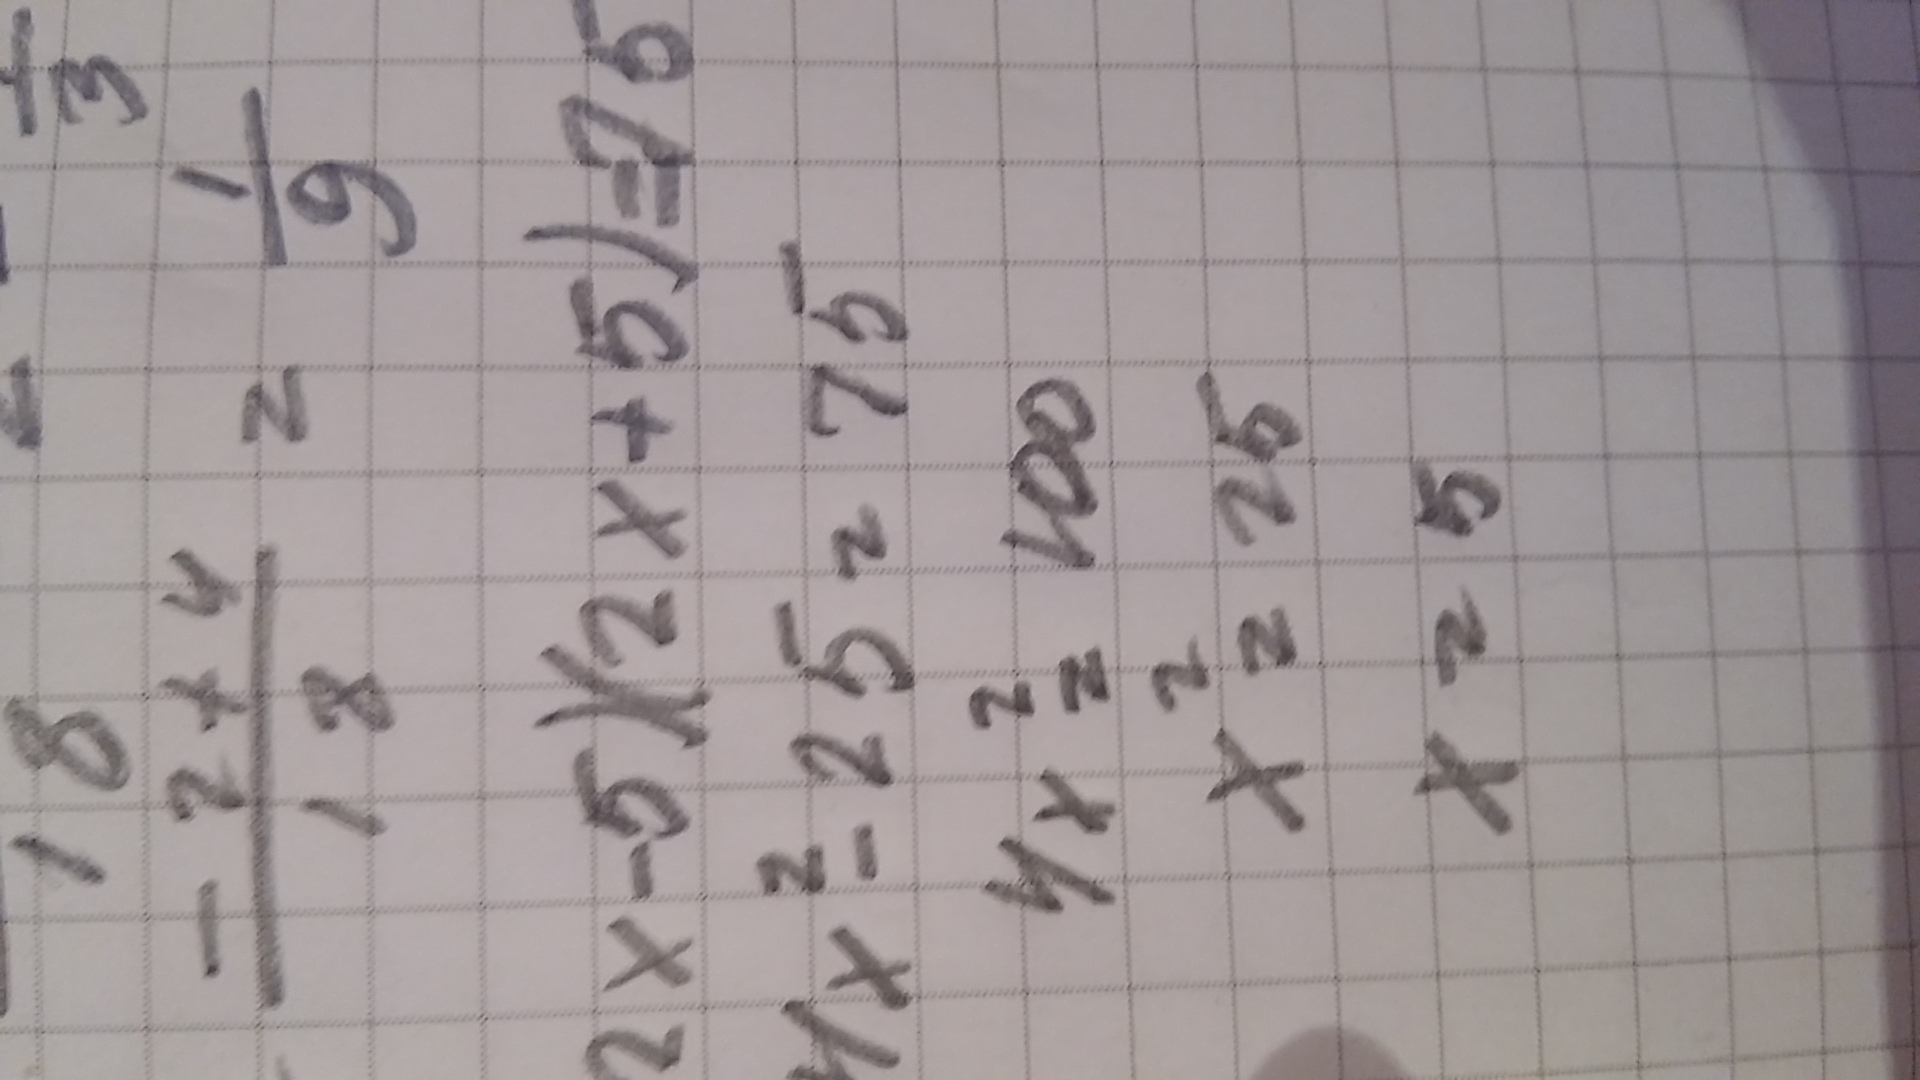 18
-2+4 = 1/9
18
2x-5)(2x+5)=75
4x²-25=75
4x²=100
x²=25
x=5